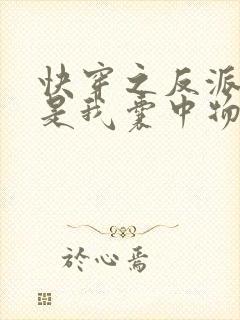 快穿之反派
是我囊中物
於心焉